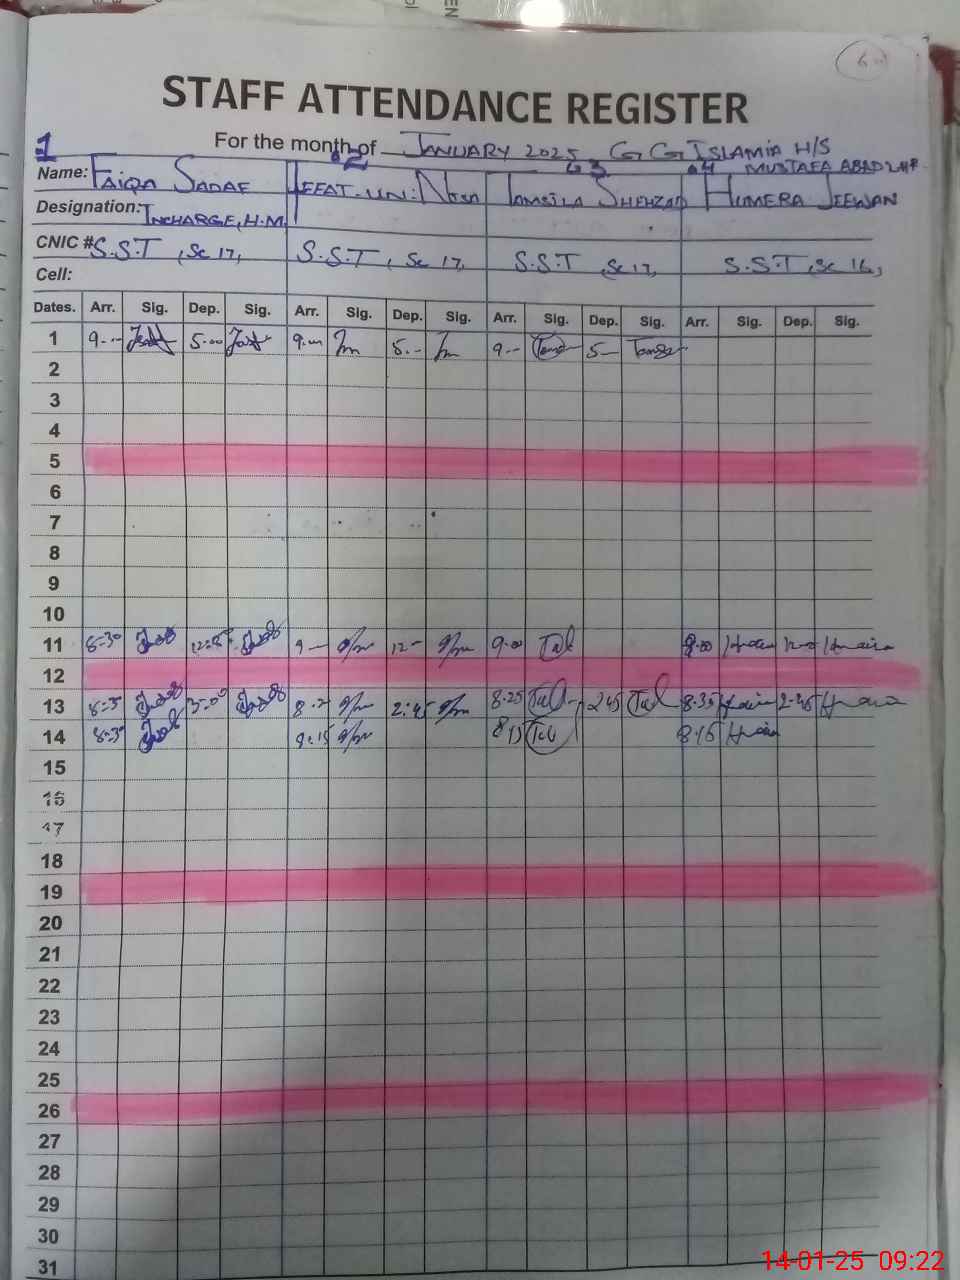 STAFF ATTENDANCE REGISTER
For the month of JANUARY 2025 G G ISLAMIA H/S
MUSTAFA ABAD LHR.
1 2 3 4
Name: FAIQA SADAF IFFAT-UN-NISA TAMSILA SHEHZAD HUMERA JEEWAN
Designation: INCHARGE, H.M.
CNIC # S.S.T, Sc 17, S.S.T, Sc 17, S.S.T, Sc 17, S.S.T, Sc 16,
Cell:
Dates. Arr. Sig. Dep. Sig. Arr. Sig. Dep. Sig. Arr. Sig. Dep. Sig. Arr. Sig. Dep. Sig.
1 9-- 5.00 9.00 5.-- 9-- 5--
2
3
4
5
6
7
8
9
10
11 8-30 9-- 12-- 9.00 Tal 9.00
12
13 8-25 Tal 2:45 245 Tal 8.35 2-45
14 9:15 8:15 Tal 8.15
15
16
17
18
19
20
21
22
23
24
25
26
27
28
29
30
31
14-01-25 09:22